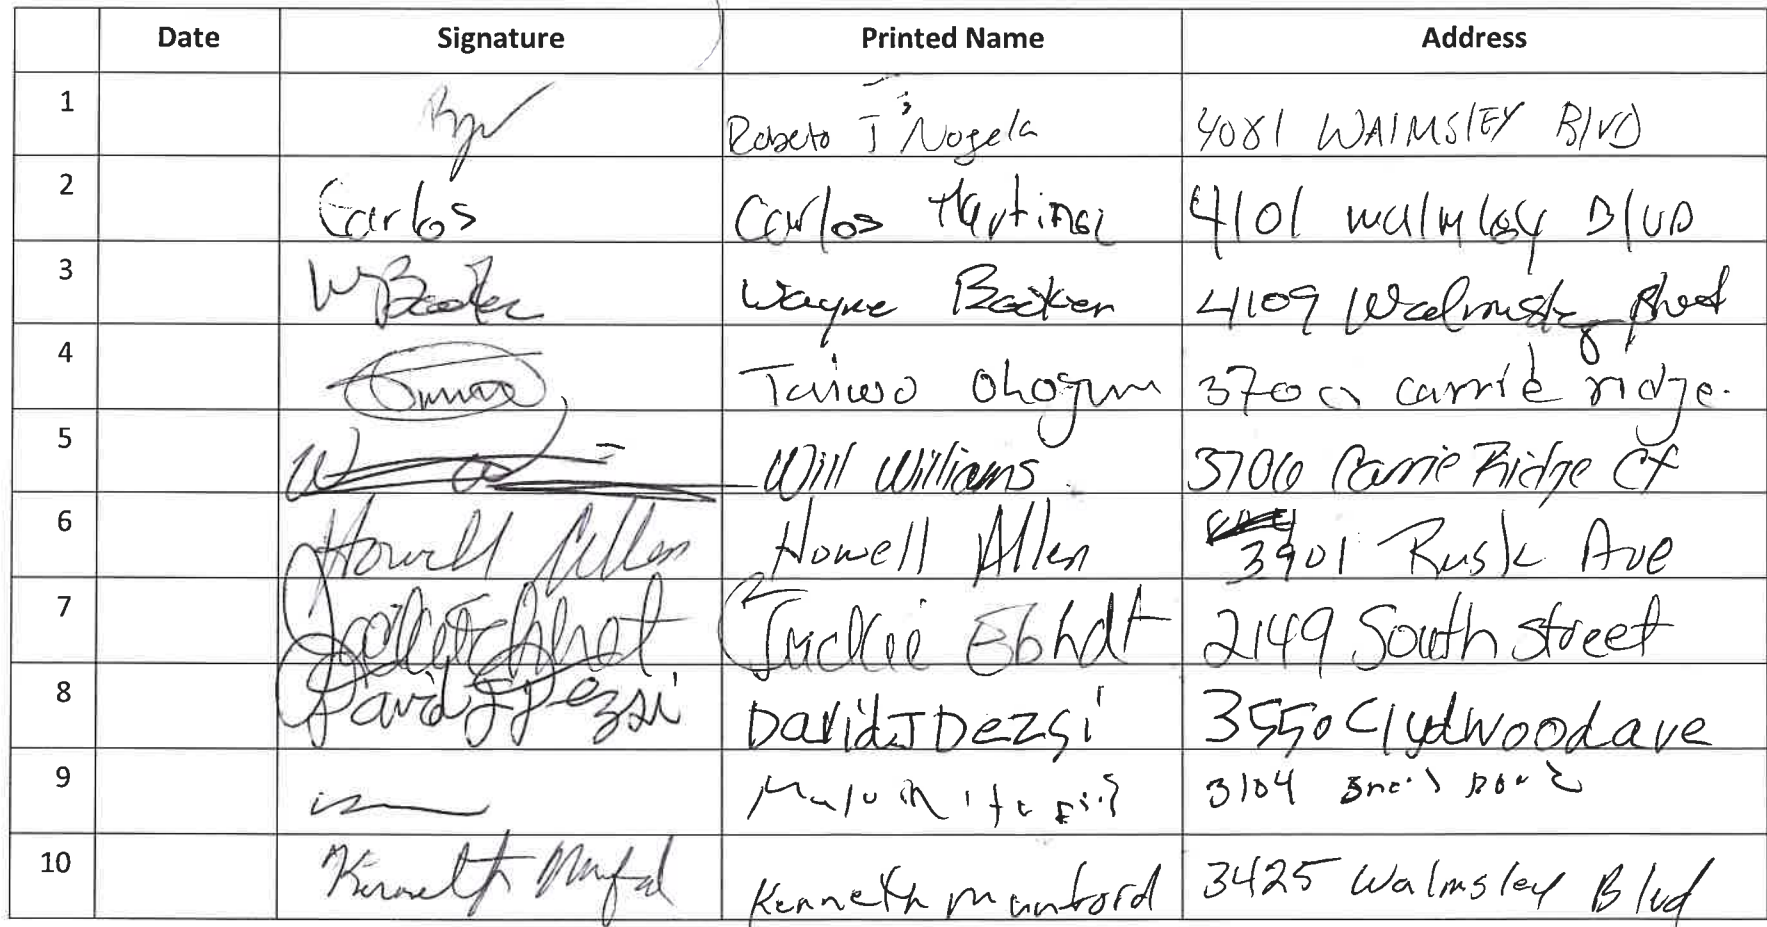 Date Signature Printed Name Address
1 Roberto J Nogela 4081 WAlMSlEY BlVD
2 Carlos Carlos 4101 Blvd
3 W Booker Wayne Booker 4109
4 Taiwo Ohogun 3700 carrie ridge.
5 Will Williams 3706 Carrie Ridge Ct
6 Howell Allen Howell Allen 3901 Rusk Ave
7 Jackie 2149 South street
8 David J Dezsi David J Dezsi 3550 Clydwood ave
9 3104
10 Kenneth Kenneth Munford 3425 Walmsley Blvd